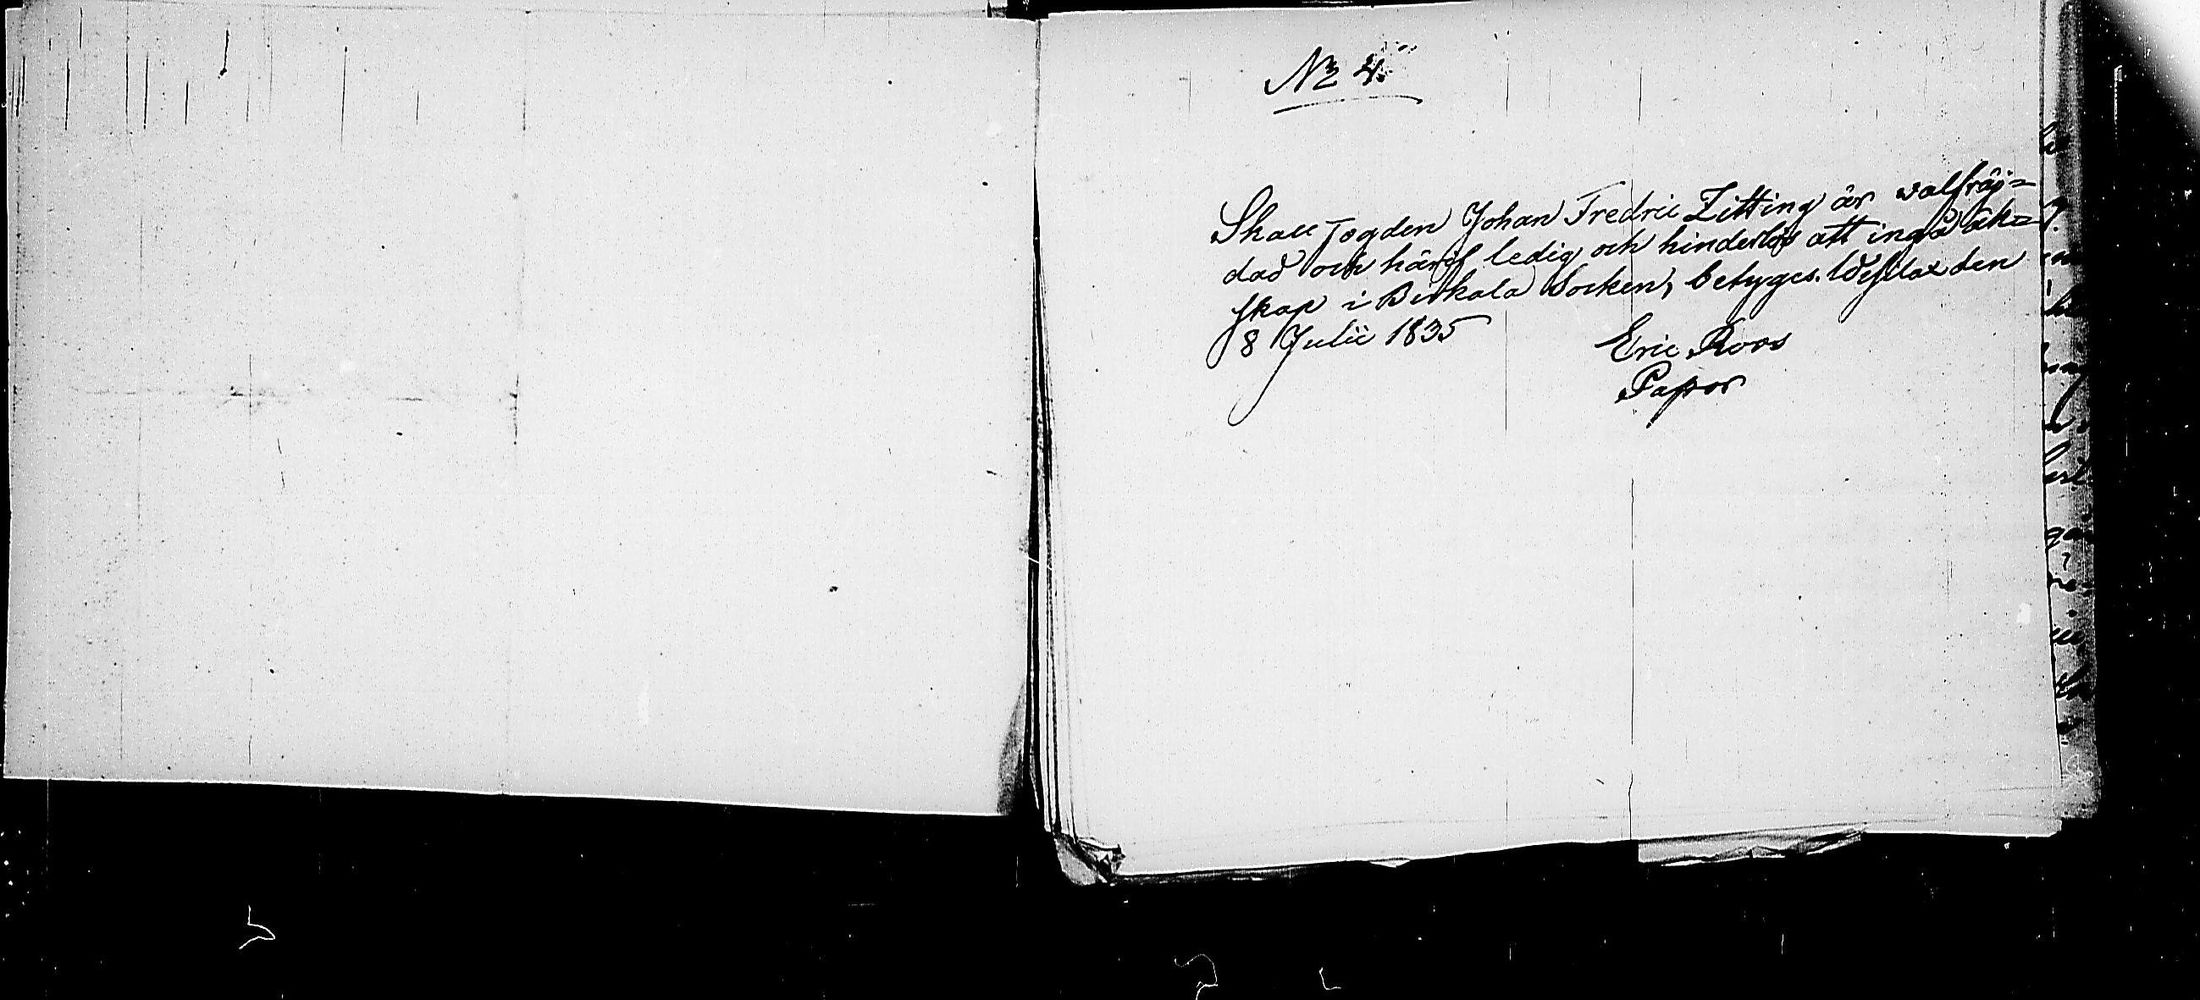 No 4.
Skall Fogden Johan Fredric Zitting är välfräj=
dad och härifr ledig och hinderlös att ingå äk=
skap i Birkala Socken, betyges. den
8 Julii 1835
Eric Roos
Pastor